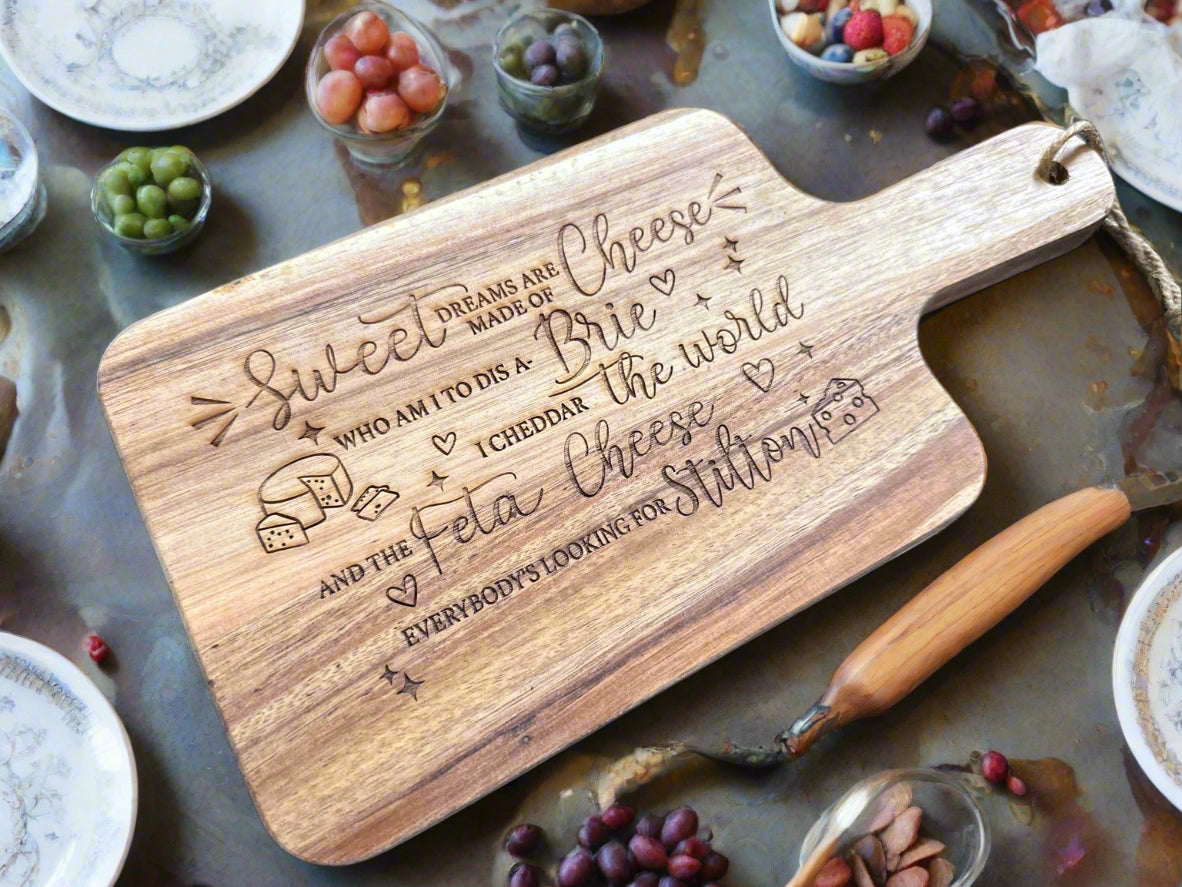 Sweet DREAMS ARE MADE OF Cheese
WHO AM I TO DIS A- Brie
I CHEDDAR the world
AND THE Feta Cheese
EVERYBODY'S LOOKING FOR Stilton